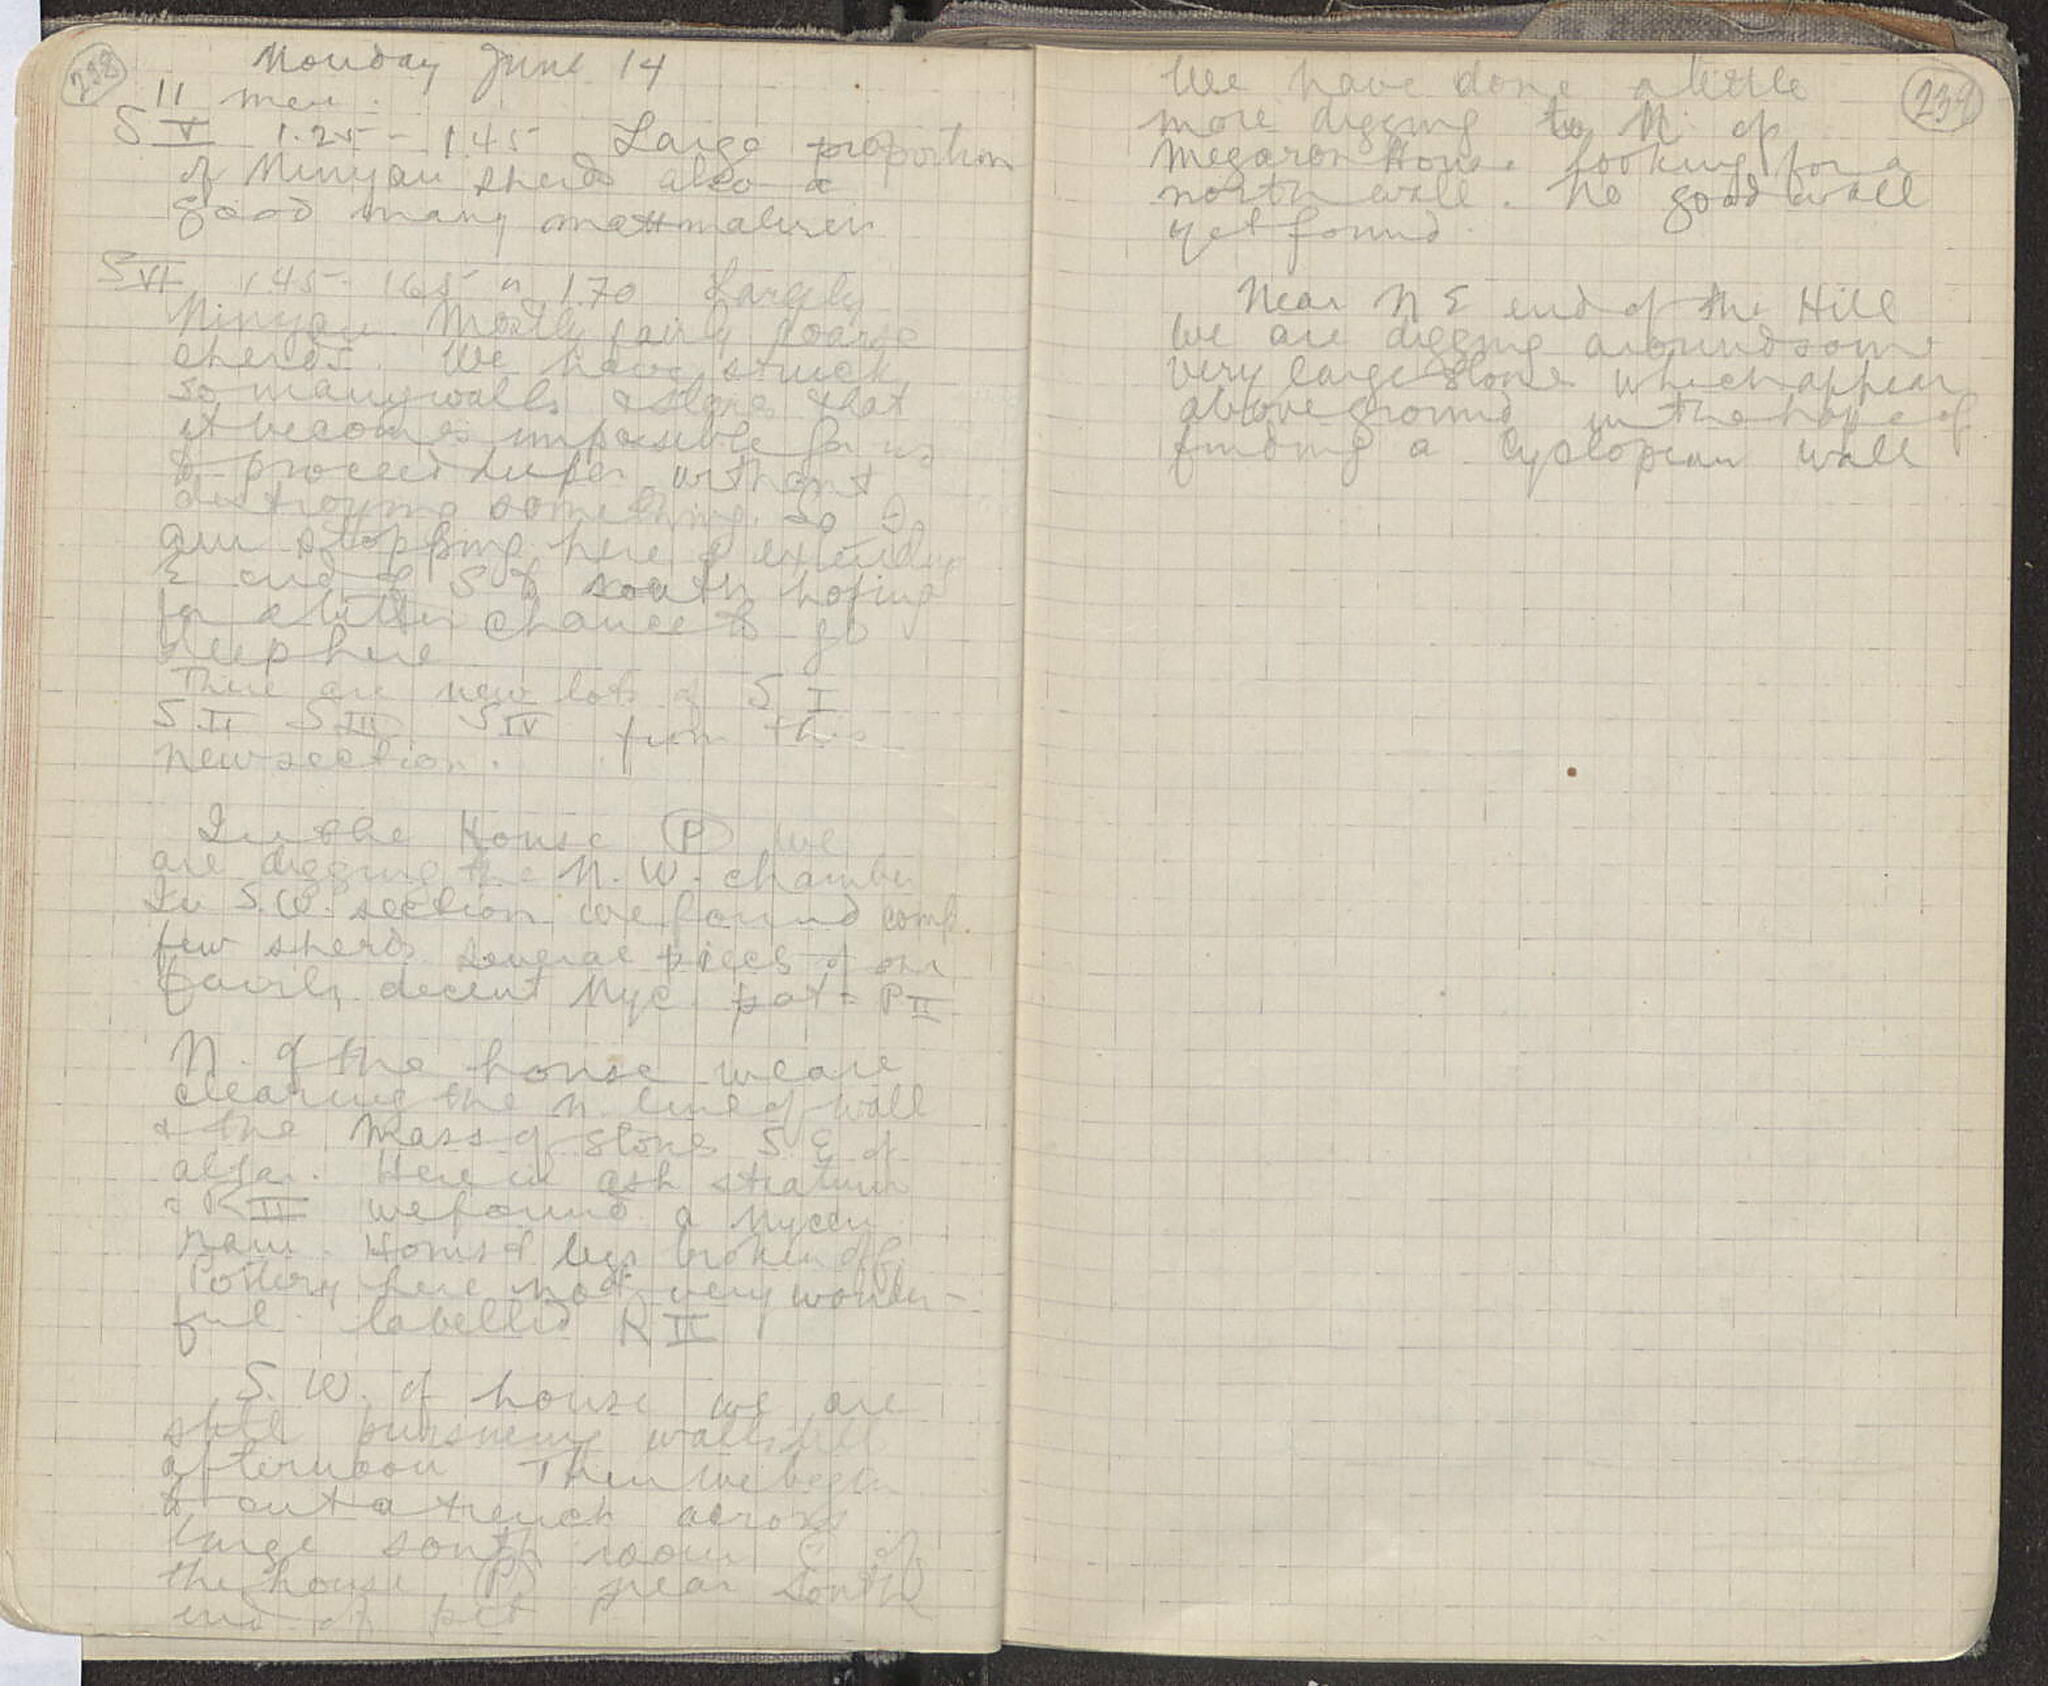 238
Monday June 14
11 men.
S V 1.25 - 1.45 Large proportion
of Minyan sherds also a
good many mattmalerei
S VI 1.45 - 1.65 or 1.70 Largely
Minyan. Mostly fairly coarse
sherds. We have struck
so many walls & stones that
it becomes impossible for us
to proceed deeper without
destroying something. So I
am stopping here & extending
E end of S to south hoping
for a better chance to go
deep here
There are new lots of S I
S II S III S IV from this
new section.
In the House (P) we
are digging the N.W. chamber
In S.W. section we found comp.
few sherds several pieces of one
fairly decent Myc. pot = P II
N. of the house we are
clearing the N. line of wall
& the mass of stones S.E. of
altar. Here in ash stratum
= R II we found a Mycen
ram. Horns & legs broken off.
Pottery here not very wonder-
ful labelled R II
S.W. of house we are
still pursueing walls till
afternoon Then we begin
to cut a trench across
large south room E of
the house (P) near south
end of pit
239
We have done a little
more digging to N. of
Megaron House looking for a
north wall. No good wall
yet found.
Near N E end of the Hill
we are digging around some
very large stones which appear
above ground in the hope of
finding a Cyclopean wall